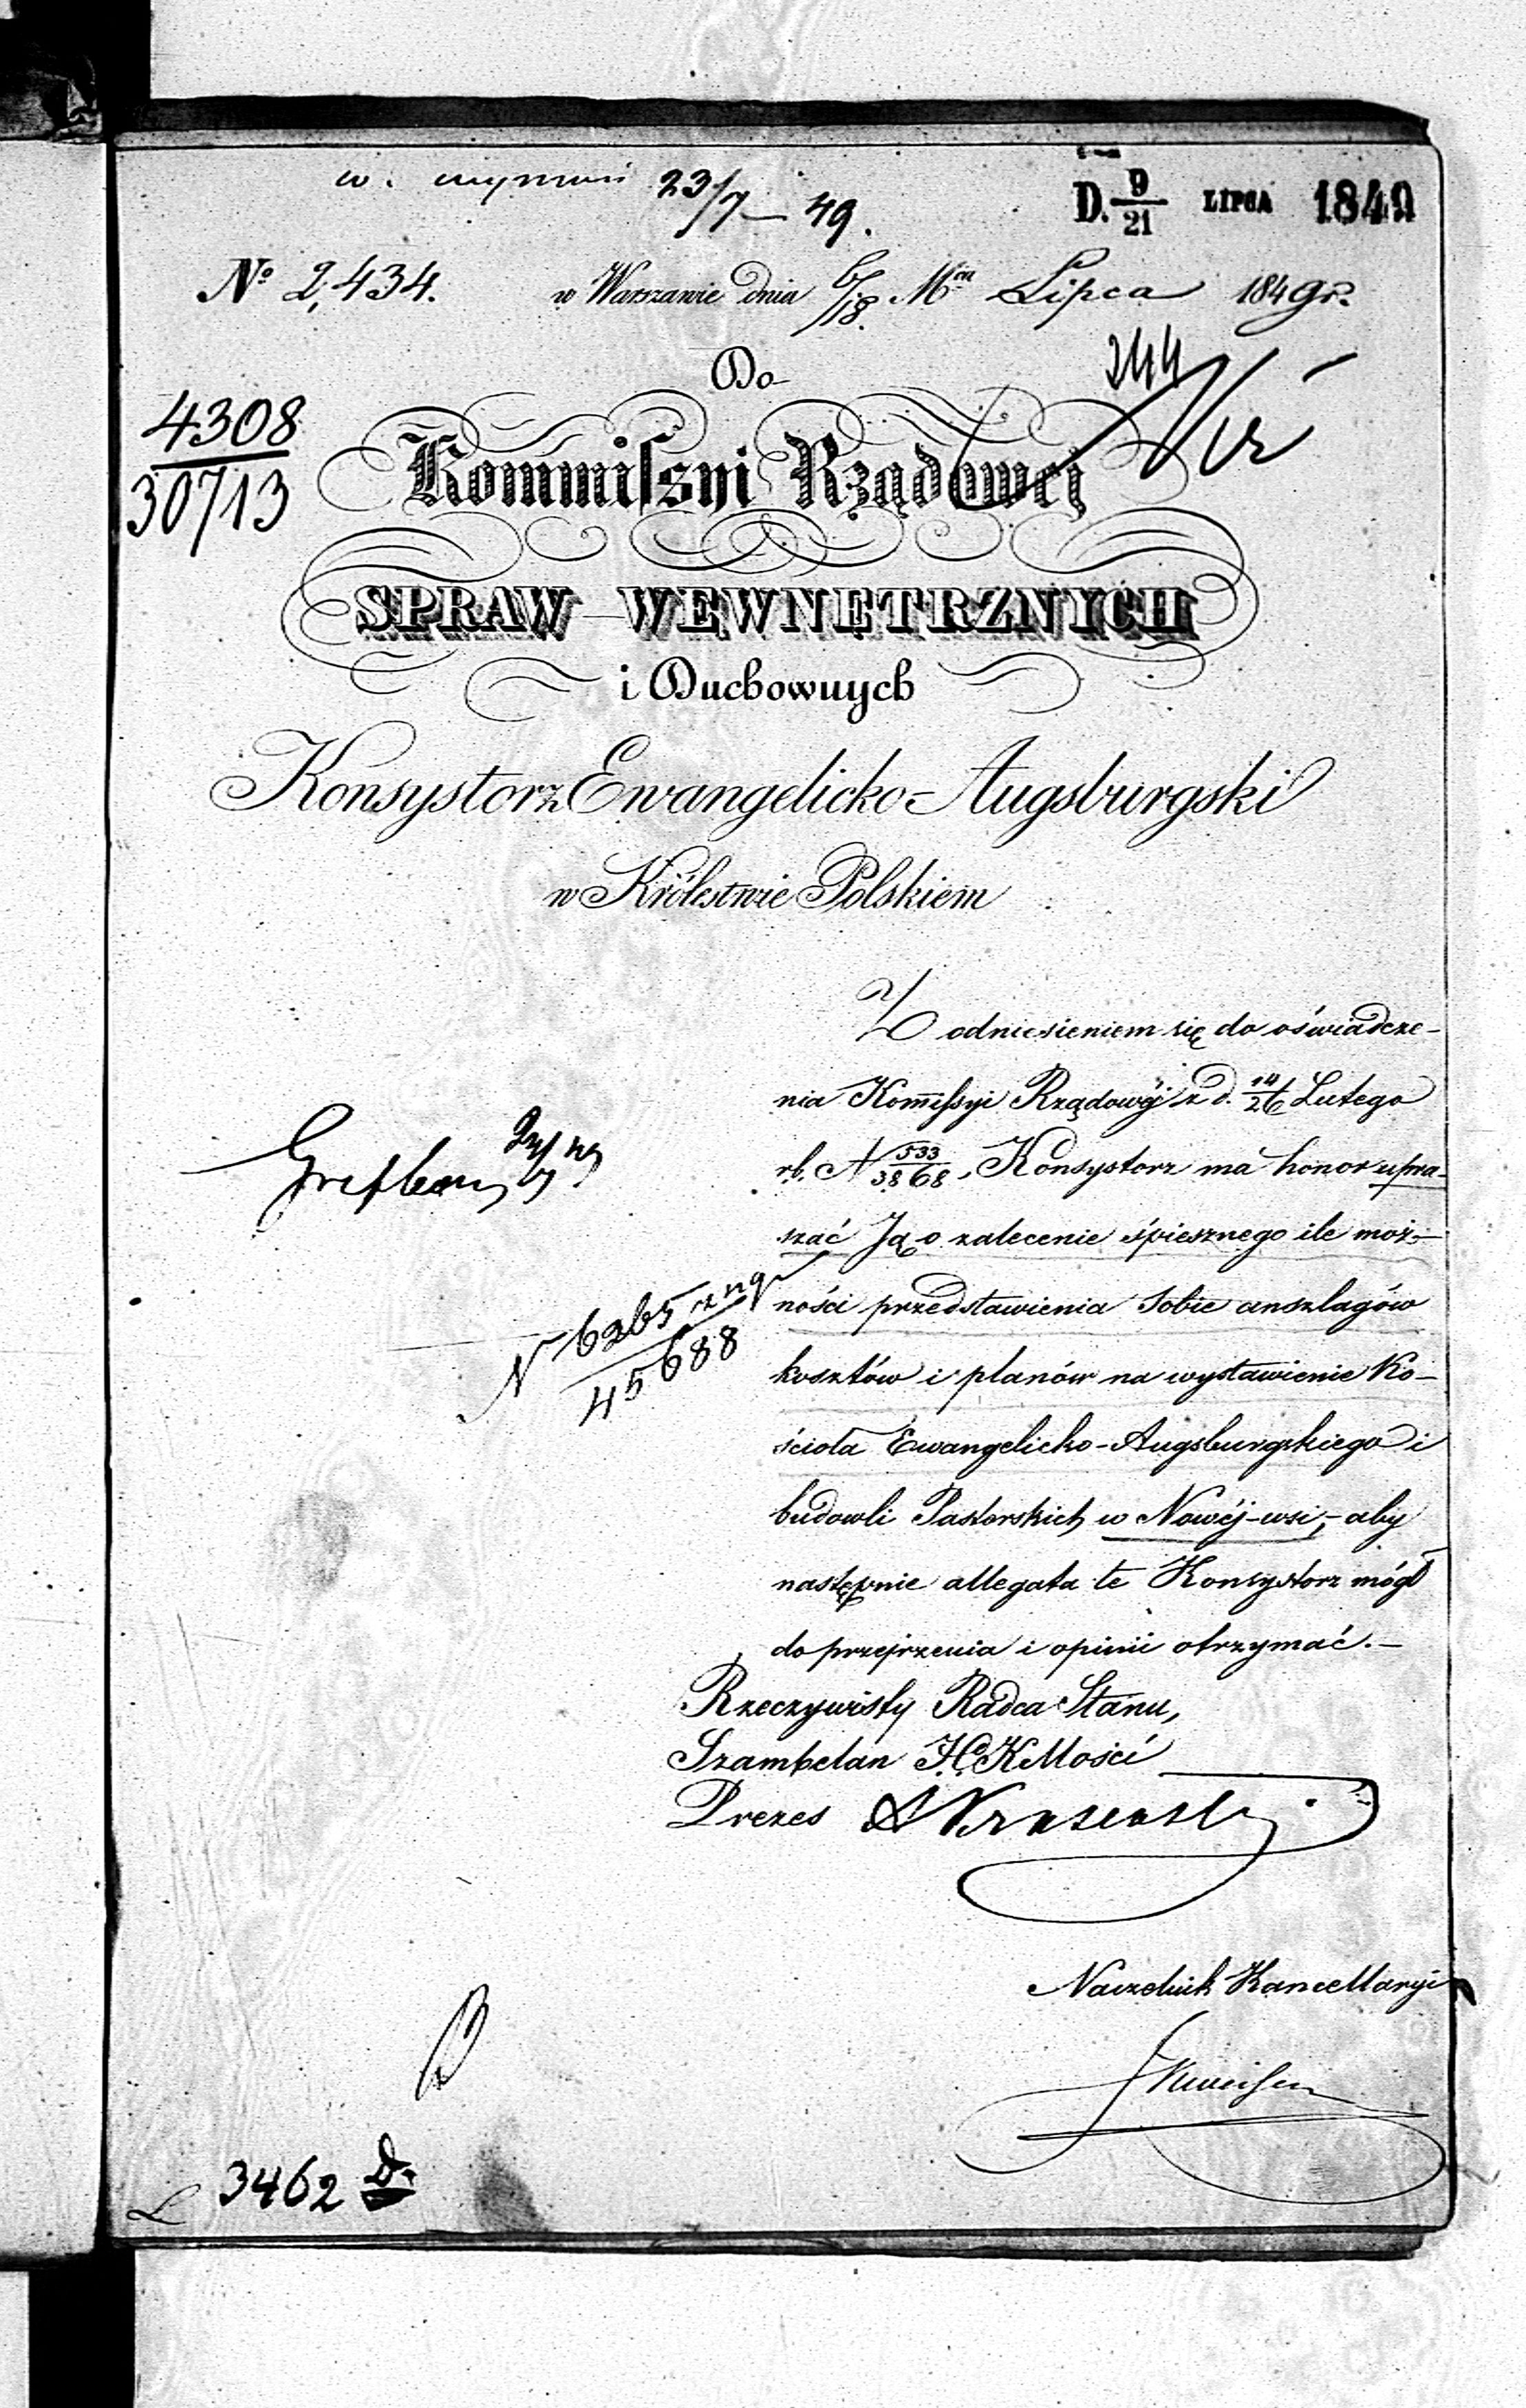 23/7 – 49.
D. 9/21 LIPCA 1849
No 2,434. w Warszawie dnia 6/18. Mca Lipca 1849 r.
244
Do
4308/30713
Kommissyi Rządowej
SPRAW WEWNĘTRZNYCH
i Duchownych
Konsystorz Ewangelicko-Augsburgski
w Królestwie Polskiem
Z odniesieniem się do oświadcze-
nia Kommissyi Rządowéj z d. 14/26 Lutego
r.b. N 533/3868, Konsystorz ma honor upra-
szać Ją o zalecenie śpiesznego ile moż-
ności przedstawienia sobie anszlagów
N 6265/45688
kosztów i planów na wystawienie Ko-
ścioła Ewangelicko-Augsburgskiego i
budowli Pastorskich w Nowéj-wsi, – aby
następnie allegata te Konsystorz mógł
do przejrzenia i opinii otrzymać. –
Rzeczywisty Radca Stanu,
Szambelan J.C.K Mości
Prezes
Naczelnik Kancellaryi
3462 D.